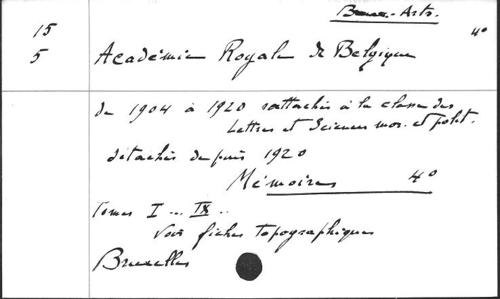 Beaux-Arts.
15
5
4°
Académie Royale de Belgique
de 1904 à 1920 rattachés à la classe des
Lettres et Sciences mor. et polit.
détachés depuis 1920
Mémoires 4°
Tomes I ... IX ..
Voir fiches topographiques
Bruxelles